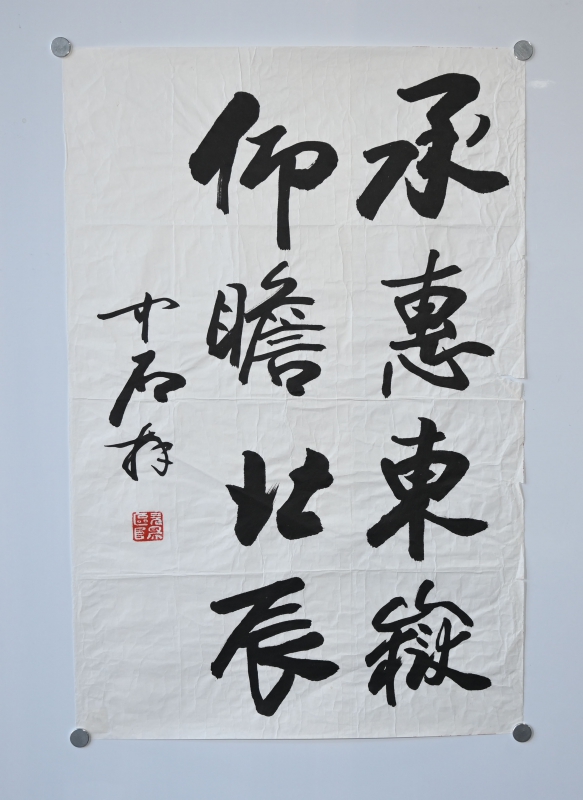 承惠東嶽
仰瞻北辰
中石拜